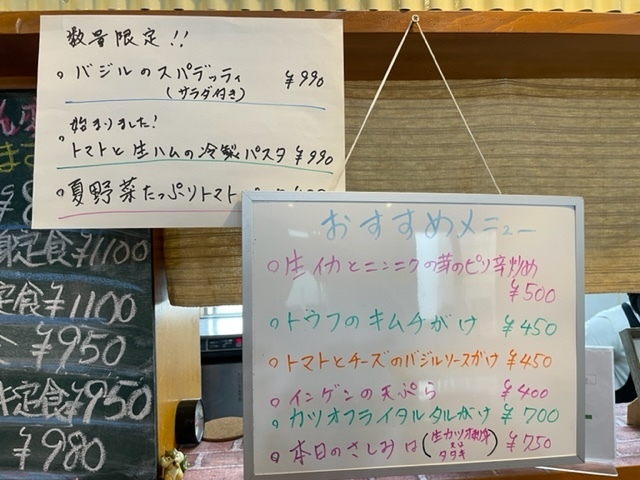 数量限定!!
。バジルのスパデッティ ¥990
(サラダ付き)
始まりました!
。トマトと生ハムの冷製パスタ ¥990
。夏野菜たっぷりトマト
おすすめメニュー
。生イカとニンニクの芽のピリ辛炒め
¥500
。トウフのキムチがけ ¥450
。トマトとチーズのバジルソースがけ ¥450
。インゲンの天ぷら ¥400
。カツオフライタルタルがけ ¥700
。本日のさしみは (生カツオ刺身 又は タタキ) ¥750
定食¥1100
定食¥1100
¥950
定食¥950
¥980